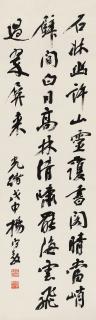 石牀幽許山靈護書閣晴當峭
壁開白日高林清嘯發海雲飛
過翠屏來 光緒戊申楊守敬